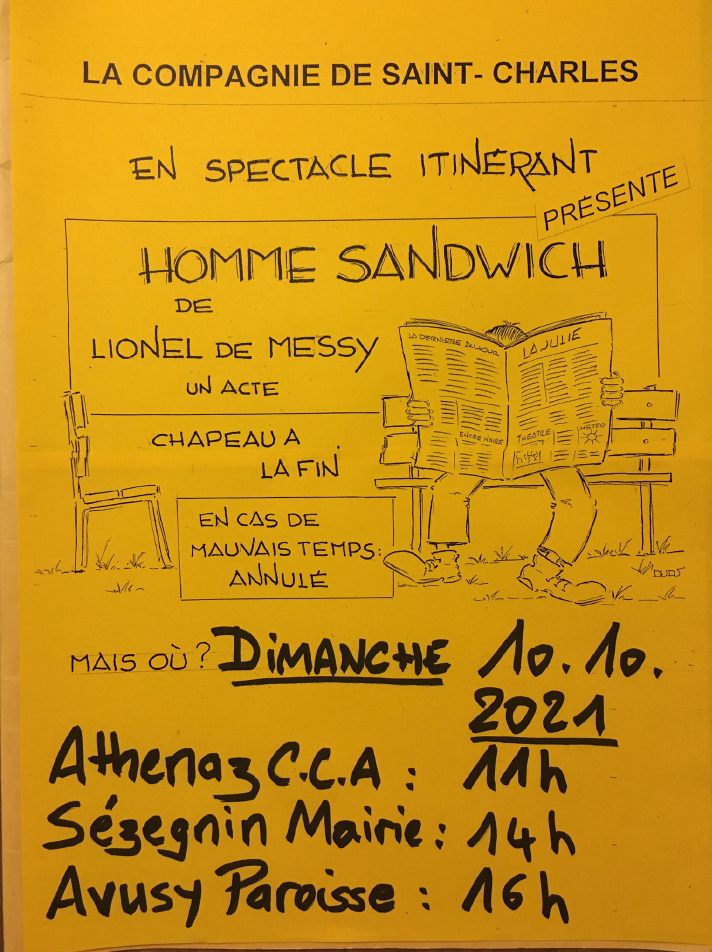 LA COMPAGNIE DE SAINT- CHARLES
EN SPECTACLE ITINÉRANT
PRÉSENTE
HOMME SANDWICH
DE
LIONEL DE MESSY
UN ACTE
CHAPEAU A
LA FIN
LA DERNIERE DU JOUR
LA JULIE
ENCRE NOIRE
THEATRE
METEO
EN CAS DE
MAUVAIS TEMPS:
ANNULÉ
DUDS
MAIS OÙ? DIMANCHE 10.10.
2021
Athenaz C.C.A : 11h
Sézegnin Mairie : 14h
Avusy Paroisse : 16h